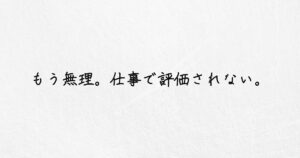 もう無理。仕事で評価されない。